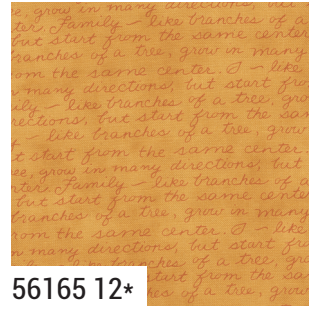 e, grow in many directions, but s
ter. Family – like branches of a
but start from the same center
ranches of a tree, grow in many
om the same center. I – like
n many directions, but start fro
ily – like branches of a tree, gro
rections, but start from the sam
– like branches of a tree, grow
t start from the same center.
ee, grow in many directions, but
nter. Family – like branches of a
but start from the same cente
branches of a tree, grow in many
rom the same center. I – like
n many directions, but start fro
hes of a tree, gro
tart from the sa
hes of a tree, grow
56165 12*